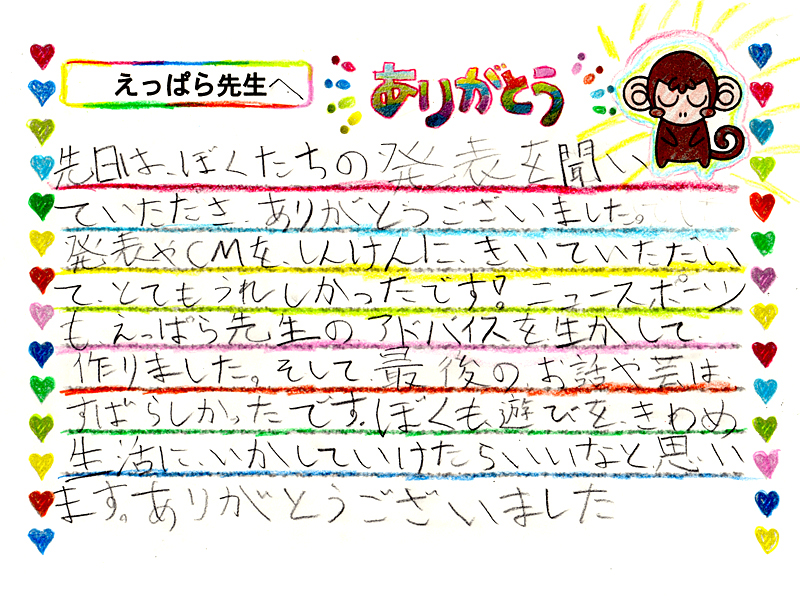 えっぱら先生へ
ありがとう
先日は、ぼくたちの発表を聞い
ていたたき、ありがとうございました。
発表やCMを、しんけんに、きいていただい
て、とてもうれしかったです!ニューススポーツ
も、えっぱら先生のアドバイスを生かして
作りました。そして最後の、お話や芸は、
すばらしかったです。ぼくも、遊びを、きわめ
生活に、いかしていけたらいいなと思い
ます。ありがとうございました